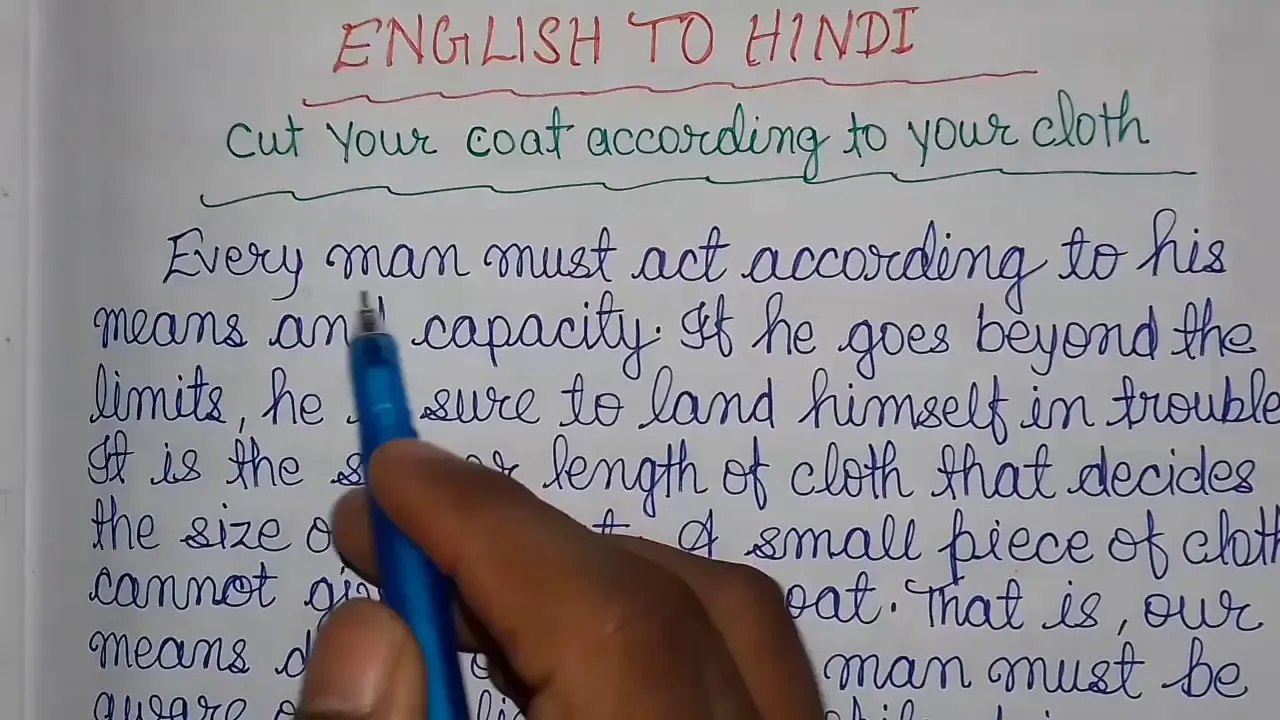 ENGLISH TO HINDI
Cut Your coat according to your cloth
Every man must act according to his
means and capacity. If he goes beyond the
limits, he sure to land himself in trouble
It is the or length of cloth that decides
the size A small piece of cloth
cannot coat. That is, our
means man must be
aware